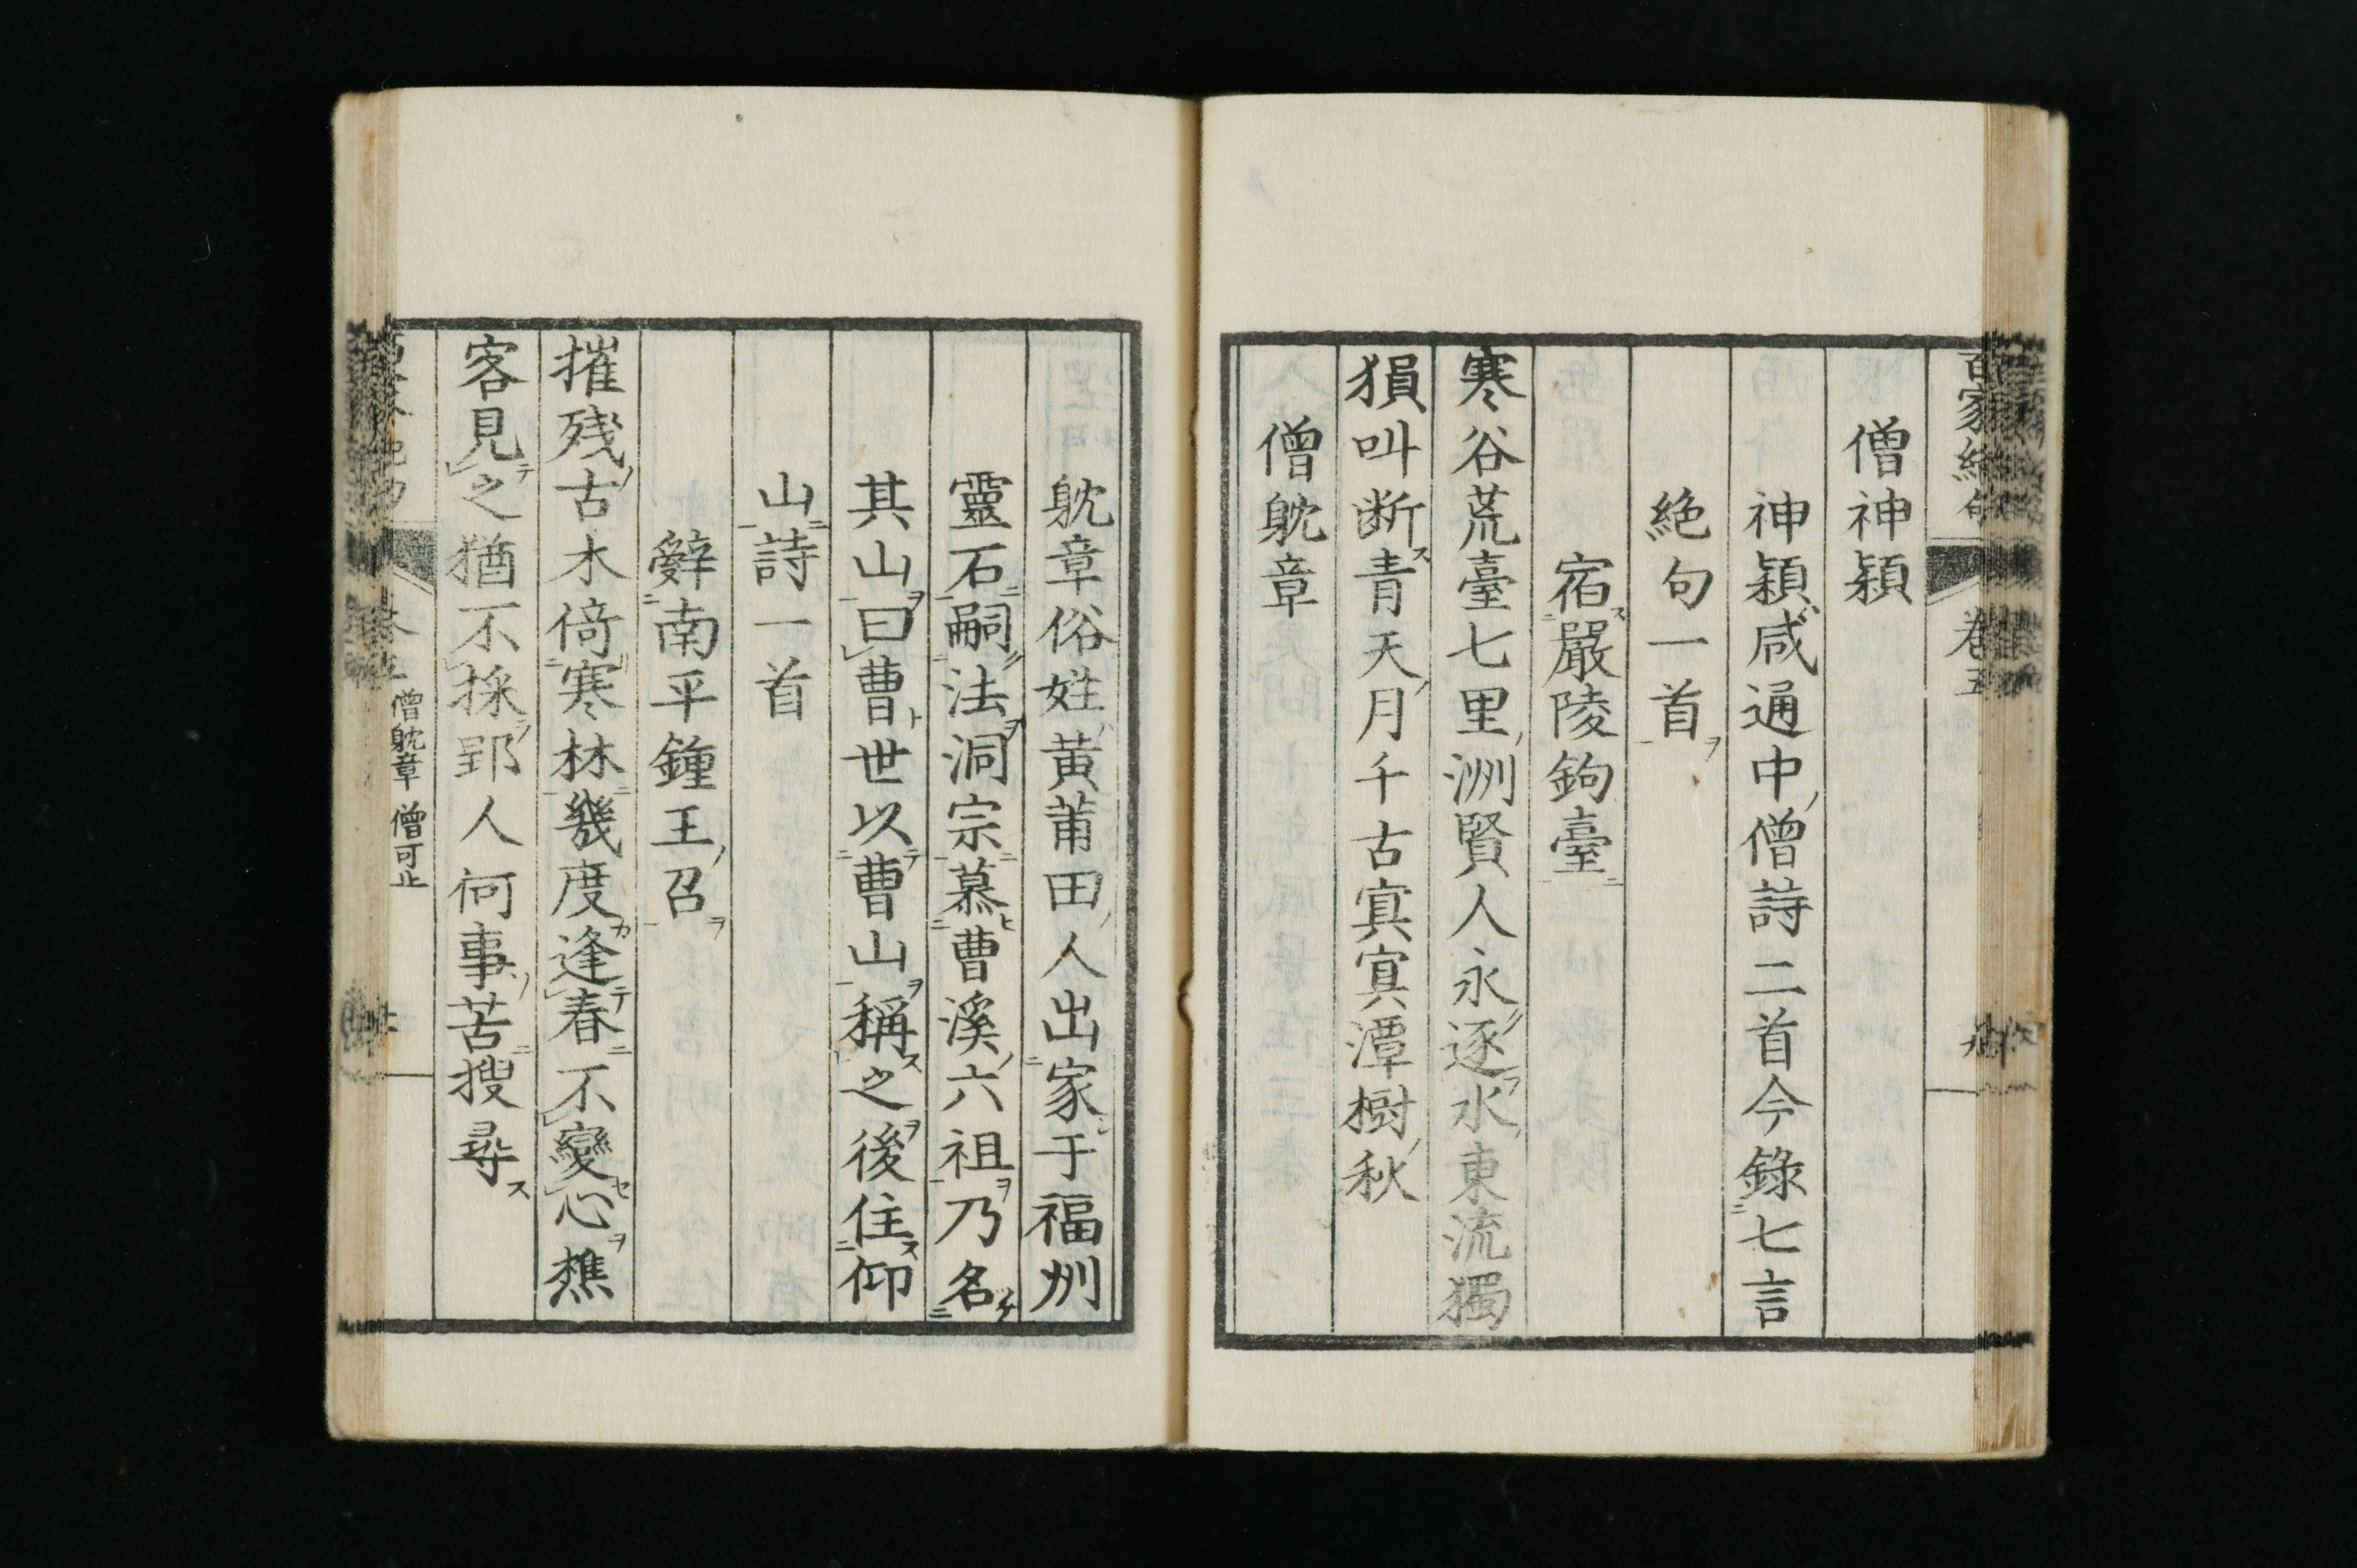 百家絶句 卷五
僧神穎
神穎咸通中僧詩二首今錄七言
絶句一首
宿嚴陵鉤臺
寒谷荒臺七里洲賢人永逐水東流獨
猨叫断青天月千古寞寞潭樹秋
僧躭章
躭章俗姓黃莆田人出家于福州
靈石嗣法洞宗慕曹溪六祖乃名
其山曰曹世以曹山稱之後住仰
山詩一首
辭南平鍾王召
摧残古木倚寒林幾度逢春不變心樵
客見之猶不採郢人何事苦搜尋
僧躭章 僧可止